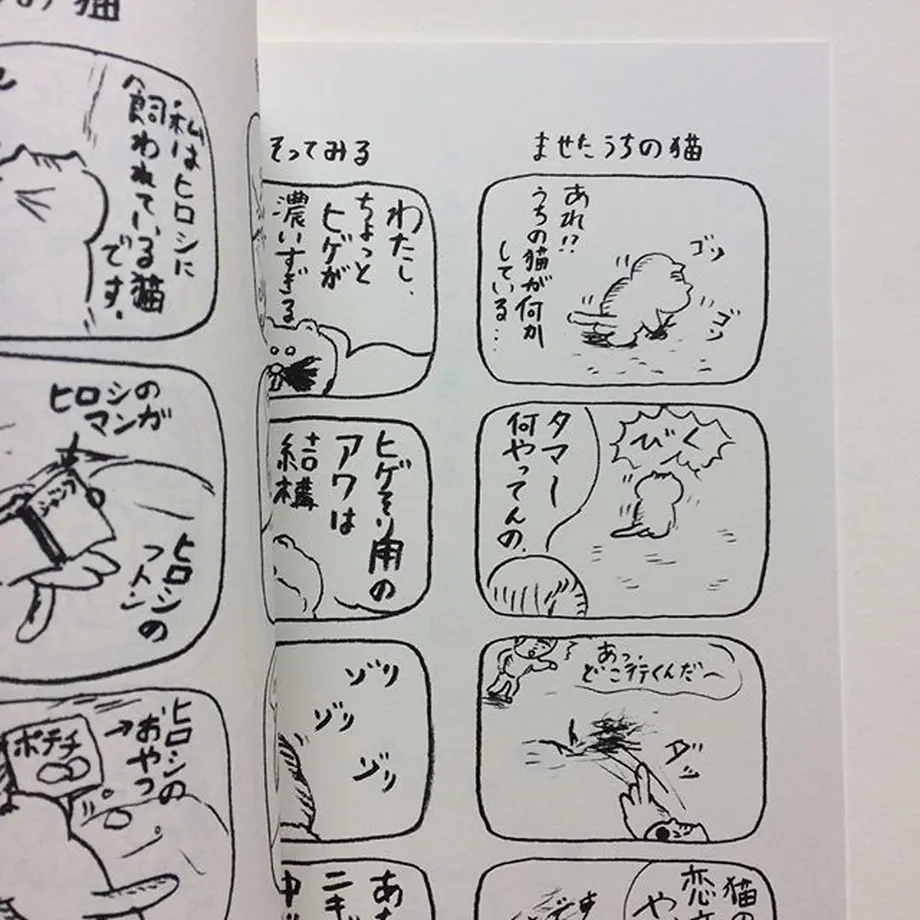 の猫
私はヒロシに
飼われている猫
です。
ヒロシの
マンガ
ジャンプ
ヒロシの
フトン
ヒロシの
おやつ
ポテチ
ませたうちの猫
あれ!?
うちの猫が何か
している…
ゴソ
ゴソ
びくっ
タマー
何やってんの。
あっ、
どこ行くんだ〜
ダッ
猫の
恋
や
そってみる
わたし、
ちょっと
ヒゲが
濃いすぎる
ヒゲそり用の
アワは
結構
ゾリ
ゾリ
ゾリ
あた
ニギ
中